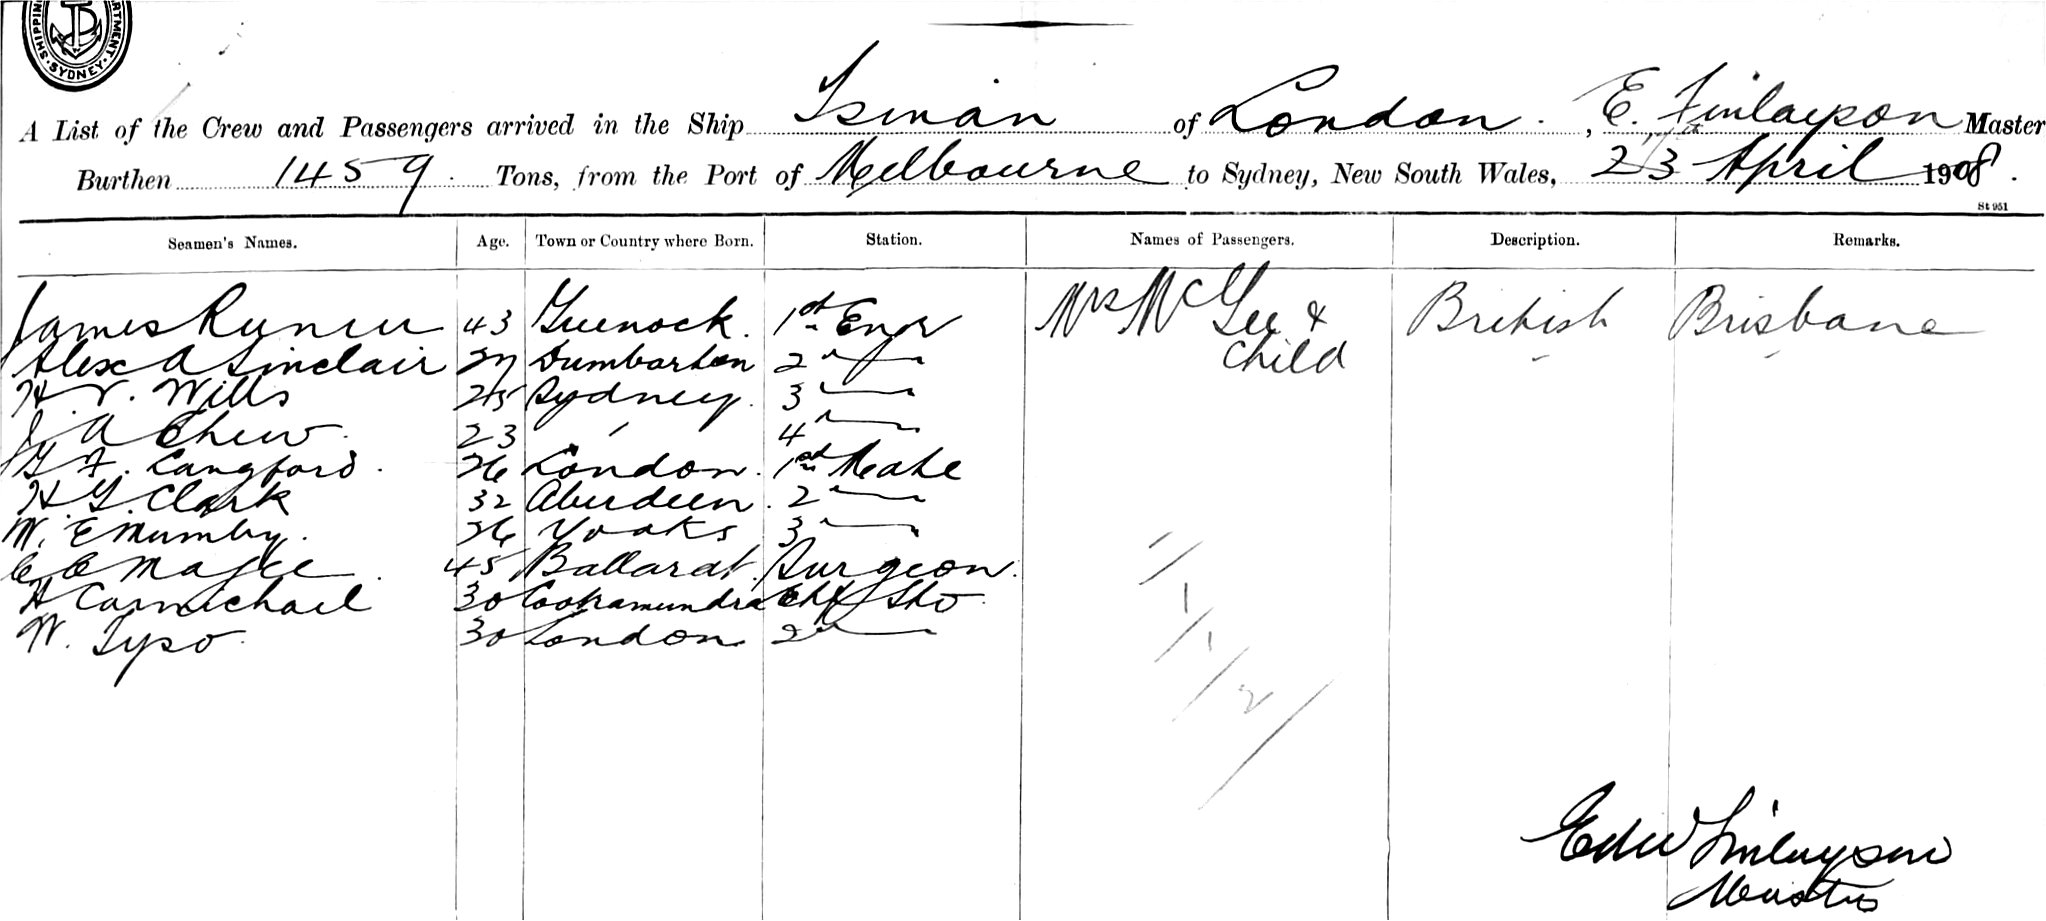 SHIPPING DEPARTMENT SYDNEY
A List of the Crew and Passengers arrived in the Ship Tsinan of London, E. Finlayson Master
Burthen 1459 Tons, from the Port of Melbourne to Sydney, New South Wales, 23 April 1908.
St 951
Seamen's Names. Age. Town or Country where Born. Station. Names of Passengers. Description. Remarks.
James 43 Greenock. 1st Engr Mrs McGee & British Brisbane
child
Alex A Sinclair 27 Dumbarton 2 "
H. V. Wills 25 Sydney 3 "
J A Chew 23 " 4 "
G F. Langford. 26 London. 1st Mate
H. G. Clark 32 Aberdeen. 2 "
W. E Mumby. 26 Yorks 3 "
C E Magee. 45 Ballarat. Surgeon.
H Carmichael 30 Cootamundra Chf Std.
W. Tyso. 30 London 2 "
1/
1/
1/
2/
Edw Finlayson
Master